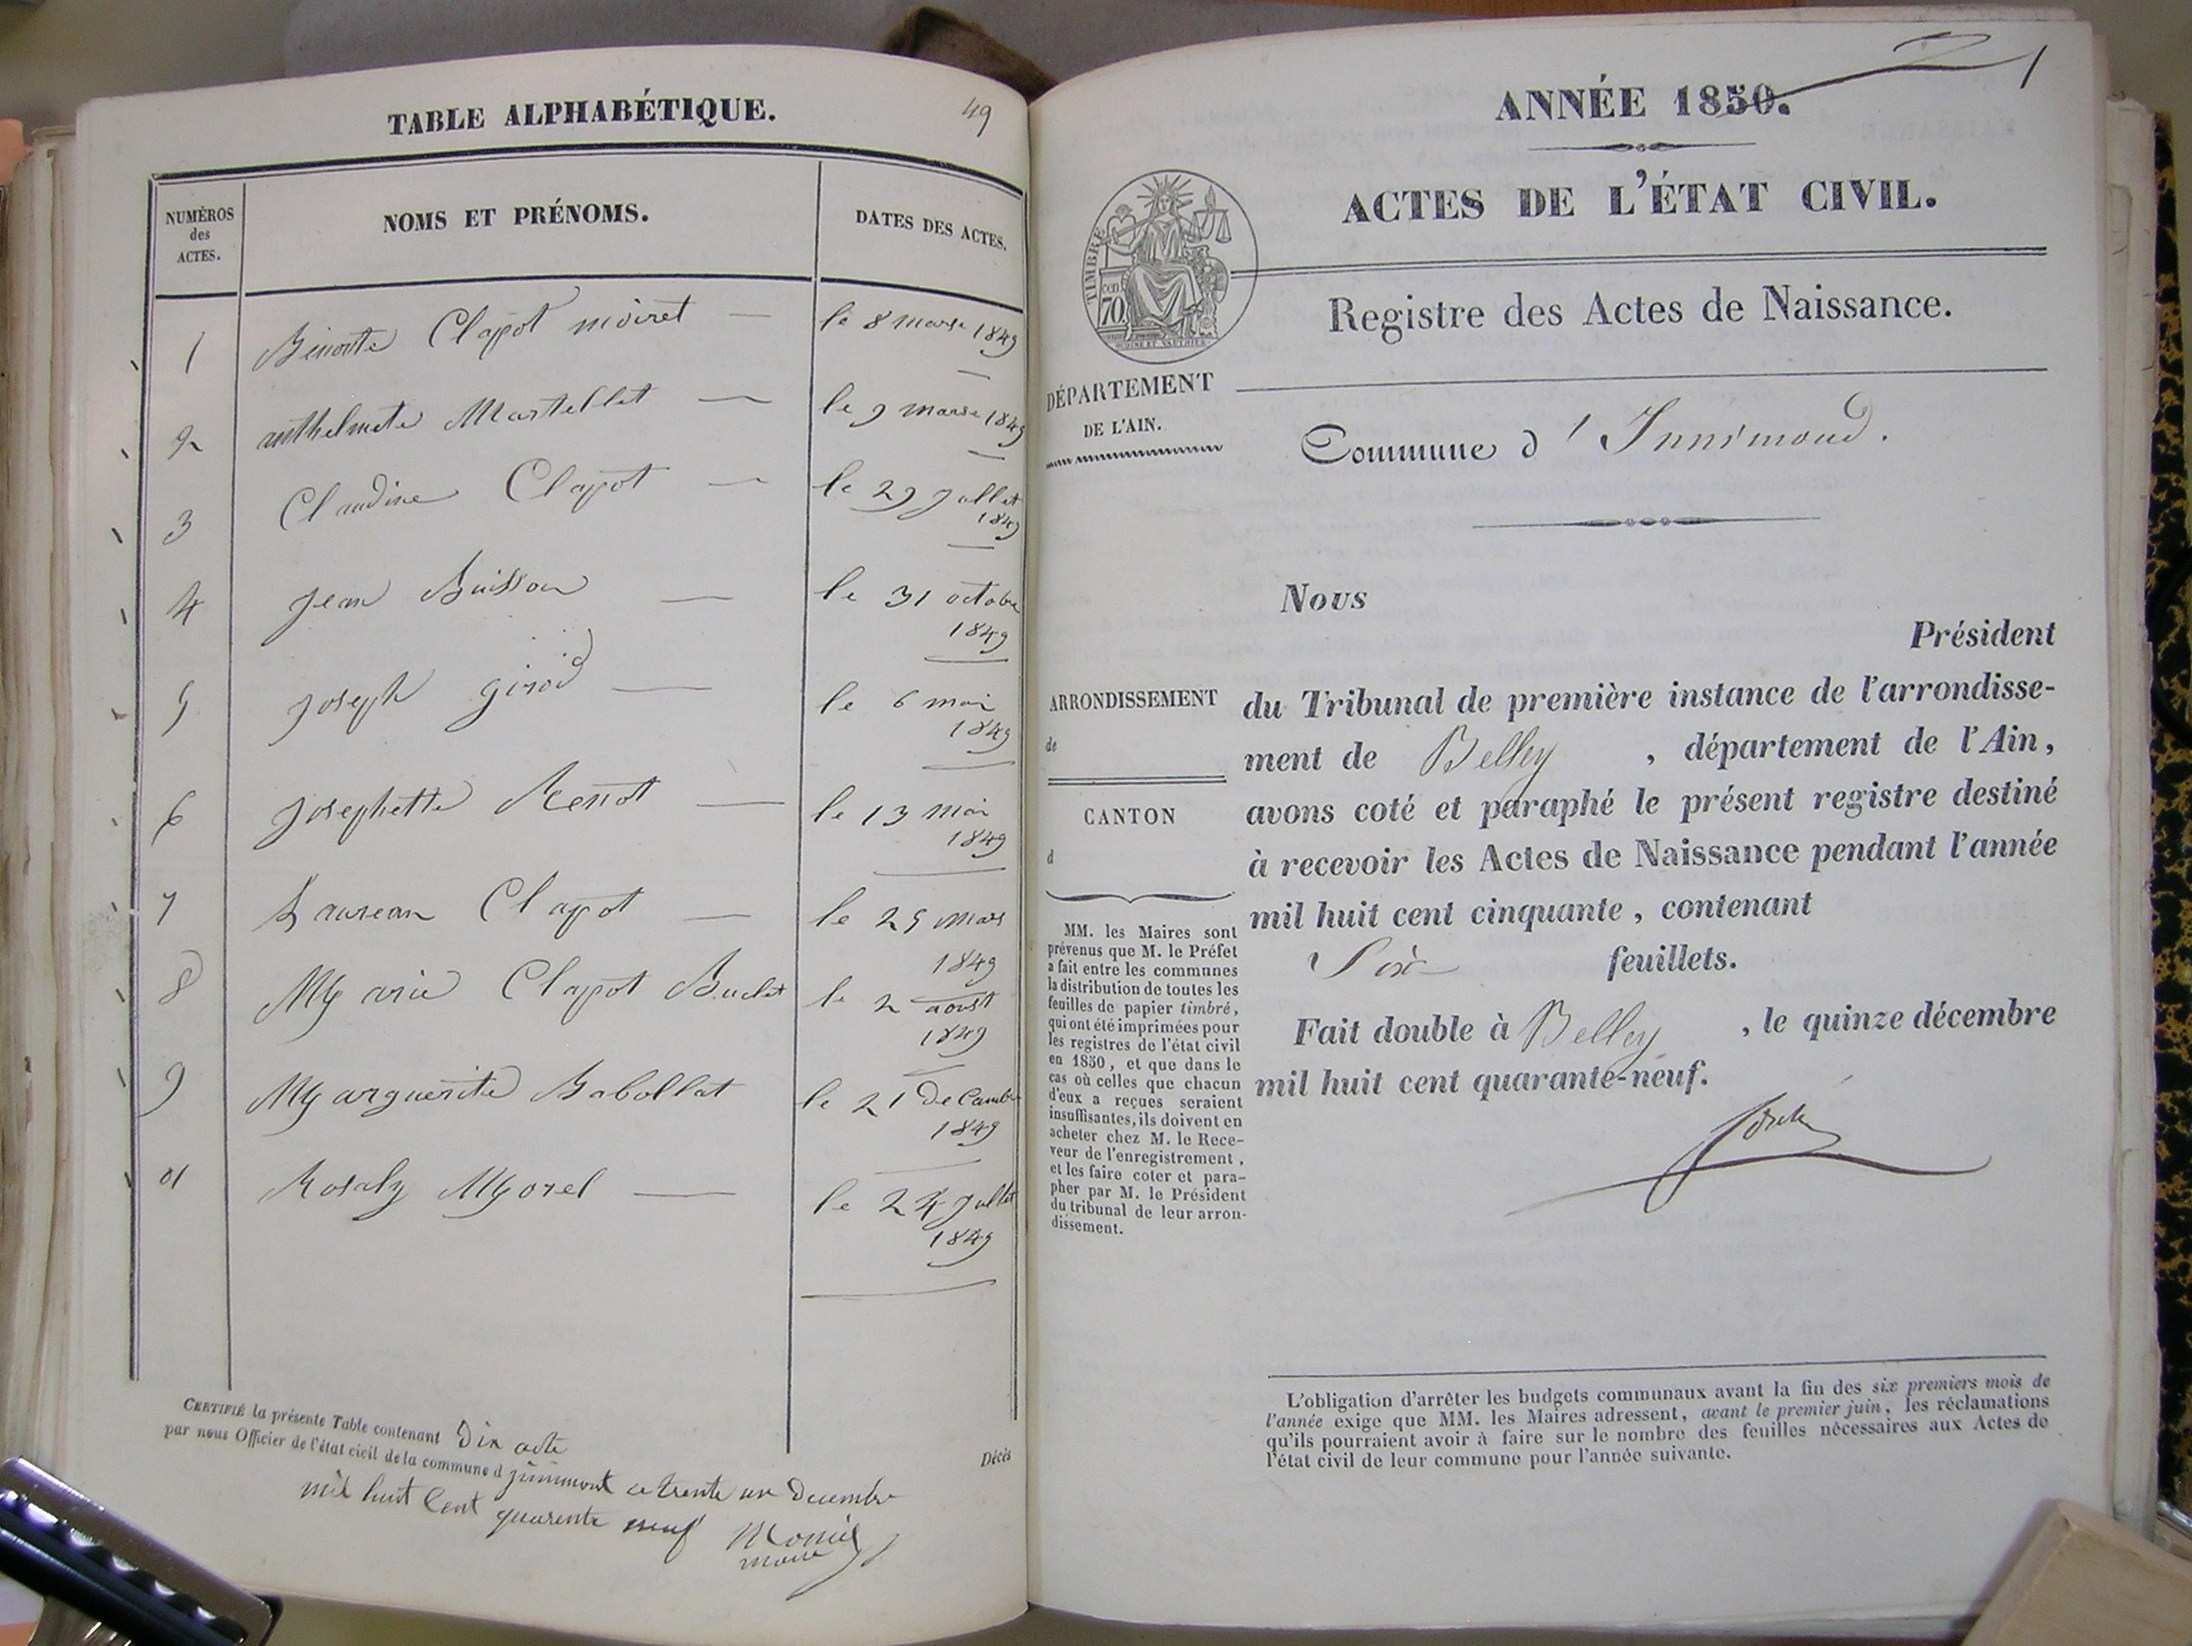 TABLE ALPHABÉTIQUE.
49
NUMÉROS
des
ACTES.
NOMS ET PRÉNOMS.
DATES DES ACTES.
1 Benoite Clapot moiret — le 8 mars 1849
2 anthelmete Martellet — le 9 mars 1849
3 Claudine Clapot — le 29 Jullet
1849
4 Jean Buisson — le 31 octobre
1849
5 Joseph girod — le 6 mai
1849
6 Josephette Renot — le 13 mai
1849
7 Laurean Clapot — le 25 mars
1849
8 Marie Clapot Buclet le 2 aoust
1849
9 Marguerite Babollat le 21 decembre
1849
01 Rosaly Morel — le 24 Jullet
1849
CERTIFIÉ la présente Table contenant Dix acte
par nous Officier de l'état civil de la commune d jinnimont ce trente un decembre
mil huit Cent quarente neuf
maire
Décès
1
ANNÉE 1850.
ACTES DE L'ÉTAT CIVIL.
TIMBRE
70
cen
Registre des Actes de Naissance.
DÉPARTEMENT
DE L'AIN.
Commune d'Innimond.
Nous
Président
ARRONDISSEMENT
de
CANTON
d
du Tribunal de première instance de l'arrondisse-
ment de Belley, département de l'Ain,
avons coté et paraphé le présent registre destiné
à recevoir les Actes de Naissance pendant l'année
mil huit cent cinquante, contenant
Six feuillets.
Fait double à Belley, le quinze décembre
mil huit cent quarante-neuf.
MM. les Maires sont
prévenus que M. le Préfet
a fait entre les communes
la distribution de toutes les
feuilles de papier timbré,
qui ont été imprimées pour
les registres de l'état civil
en 1850, et que dans le
cas où celles que chacun
d'eux a reçues seraient
insuffisantes, ils doivent en
acheter chez M. le Rece-
veur de l'enregistrement,
et les faire coter et para-
pher par M. le Président
du tribunal de leur arron-
dissement.
L'obligation d'arrêter les budgets communaux avant la fin des six premiers mois de
l'année exige que MM. les Maires adressent, avant le premier juin, les réclamations
qu'ils pourraient avoir à faire sur le nombre des feuilles nécessaires aux Actes de
l'état civil de leur commune pour l'année suivante.